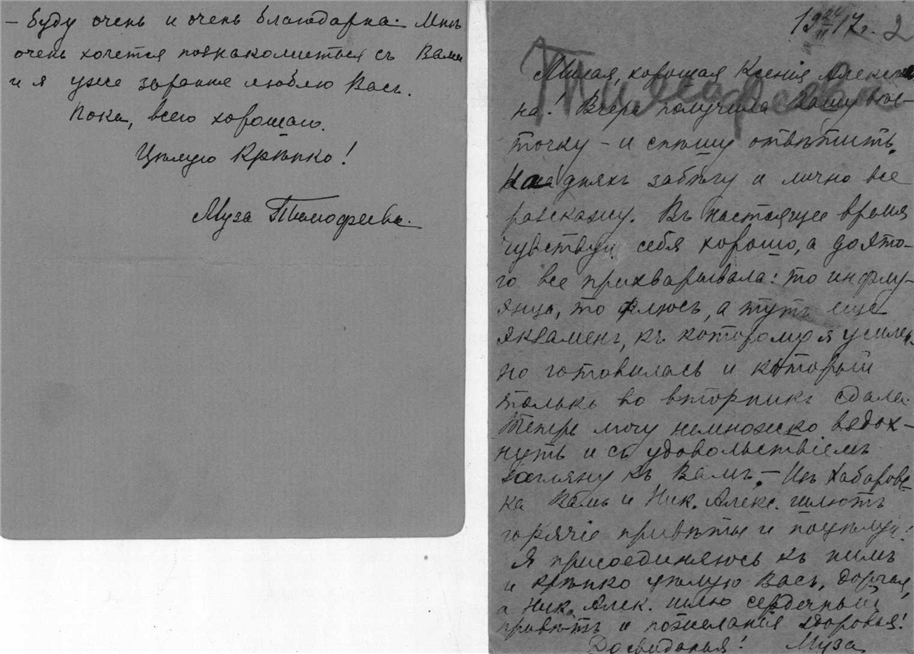 – буду очень и очень благодарна. Мнѣ
очень хочется познакомиться съ Вами
и я уже заранѣе люблю Васъ.
Пока, всего хорошаго.
Цѣлую крѣпко!
Муза Тимофеева.
17г. 2
Тимофеева
Милая, хорошая Ксенія Алексан
на! Вчера получила Вашу кар-
точку – и спѣшу отвѣтить.
На дняхъ забѣгу и лично все
разскажу. Въ настоящее время
чувствую себя хорошо, а до это-
го все прихварывала: то инфлу-
энца, то флюсъ, а тутъ еще
экзаменъ, къ которому я усилен-
но готовилась и который
только во вторникъ сдала.
Теперь могу немножко вздох-
нуть и съ удовольствіемъ
загляну къ Вамъ. – Изъ Хабаровс-
ка Вамъ и Ник. Алекс. шлютъ
горячіе привѣты и поцѣлуи.
Я присоединяюсь къ нимъ
и крѣпко цѣлую Васъ, дорогая,
а Ник. Алек. шлю сердечный
привѣтъ и пожеланія здоровья!
До свиданья! Муза